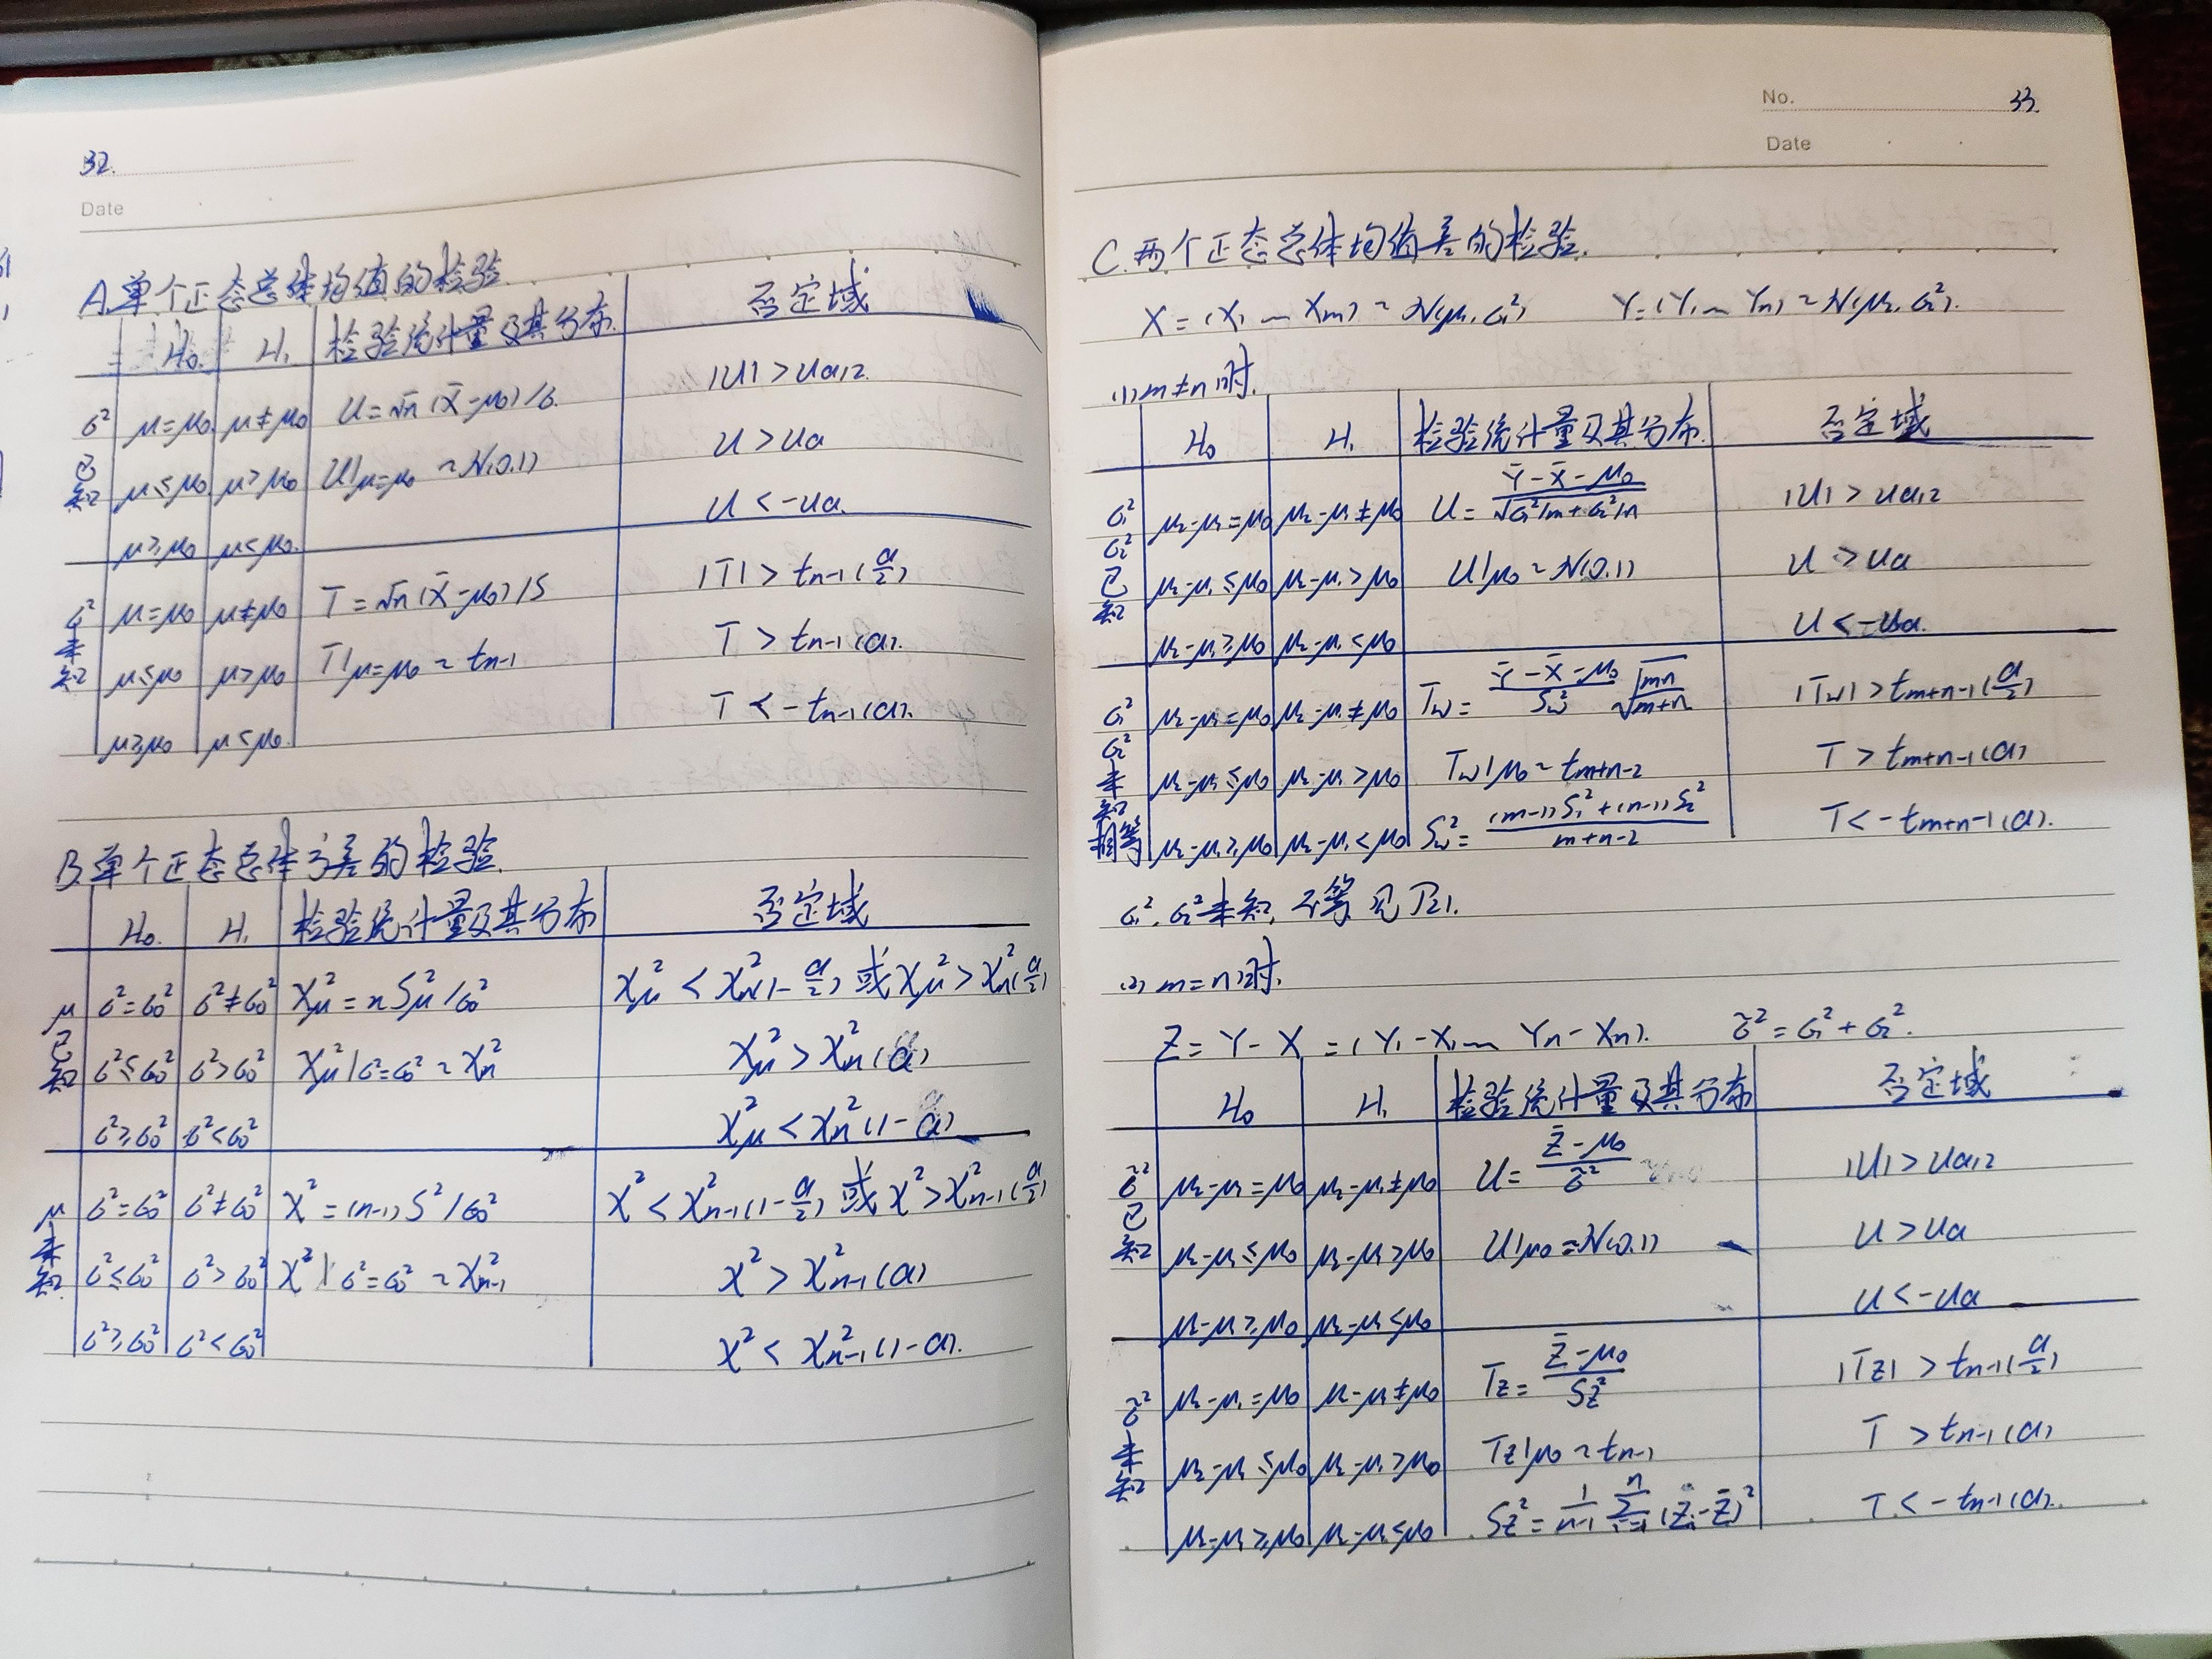 32.
Date
A.单个正态总体均值的检验.
H₀. H₁ 检验统计量及其分布. 否定域
σ²已知 μ=μ₀. μ≠μ₀ U=√n(X̄-μ₀)/σ. |U|>uα/2.
μ≤μ₀. μ>μ₀ U|μ=μ₀ ~N(0.1) U>uα
μ≥μ₀ μ<μ₀. U<-uα.
σ²未知 μ=μ₀ μ≠μ₀ T=√n(X̄-μ₀)/S |T|>tn-1(α/2)
μ≤μ₀ μ>μ₀ T|μ=μ₀ ~ tn-1 T>tn-1(α).
μ≥μ₀ μ<μ₀. T<-tn-1(α).
B.单个正态总体方差的检验.
H₀. H₁ 检验统计量及其分布 否定域
μ已知 σ²=σ₀² σ²≠σ₀² χμ²=nSμ²/σ₀² χμ²<χn²(1-α/2) 或 χμ²>χn²(α/2)
σ²≤σ₀² σ²>σ₀² χμ²|σ²=σ₀² ~χn² χμ²>χn²(α)
σ²≥σ₀² σ²<σ₀² χμ²<χn²(1-α)
μ未知. σ²=σ₀² σ²≠σ₀² χ²=(n-1)S²/σ₀² χ²<χn-1²(1-α/2) 或 χ²>χn-1²(α/2)
σ²≤σ₀² σ²>σ₀² χ²|σ²=σ₀² ~χn-1² χ²>χn-1²(α)
σ²≥σ₀² σ²<σ₀² χ²<χn-1²(1-α).
No. 33.
Date
C.两个正态总体均值差的检验.
X=(X₁ ~ Xm) ~ N(μ₁,σ₁²) Y=(Y₁ ~ Yn) ~ N(μ₂,σ₂²).
(1) m≠n时.
H₀ H₁ 检验统计量及其分布. 否定域
σ₁² σ₂²已知 μ₂-μ₁=μ₀ μ₂-μ₁≠μ₀ U=(Ȳ-X̄-μ₀)/√(σ₁²/m+σ₂²/n) |U|>uα/2
μ₂-μ₁≤μ₀ μ₂-μ₁>μ₀ U|μ₀ ~ N(0.1) U>uα
μ₂-μ₁≥μ₀ μ₂-μ₁<μ₀ U<-uα.
σ₁² σ₂²未知相等 μ₂-μ₁=μ₀ μ₂-μ₁≠μ₀ Tw=(Ȳ-X̄-μ₀)/Sw² √(mn/(m+n)) |Tw|>tm+n-1(α/2)
μ₂-μ₁≤μ₀ μ₂-μ₁>μ₀ Tw|μ₀ ~ tm+n-2 T>tm+n-1(α)
μ₂-μ₁≥μ₀ μ₂-μ₁<μ₀ Sw²=((m-1)S₁²+(n-1)S₂²)/(m+n-2) T<-tm+n-1(α).
σ₁², σ₂²未知, 不等 见P21.
(2) m=n时.
Z=Y-X=(Y₁-X₁ ~ Yn-Xn). σ̃²=σ₁²+σ₂².
H₀ H₁ 检验统计量及其分布 否定域
σ̃²已知 μ₂-μ₁=μ₀ μ₂-μ₁≠μ₀ U=(Z̄-μ₀)/σ̃² |U|>uα/2
μ₂-μ₁≤μ₀ μ₂-μ₁>μ₀ U|μ₀=N(0.1) U>uα
μ₂-μ₁≥μ₀ μ₂-μ₁≤μ₀ U<-uα
σ̃²未知 μ₂-μ₁=μ₀ μ₂-μ₁≠μ₀ Tz=(Z̄-μ₀)/Sz² |Tz|>tn-1(α/2)
μ₂-μ₁≤μ₀ μ₂-μ₁>μ₀ Tz|μ₀ ~ tn-1 T>tn-1(α)
μ₂-μ₁≥μ₀ μ₂-μ₁≤μ₀ Sz²=1/(n-1) Σⁿi=1(Zi-Z̄)² T<-tn-1(α).